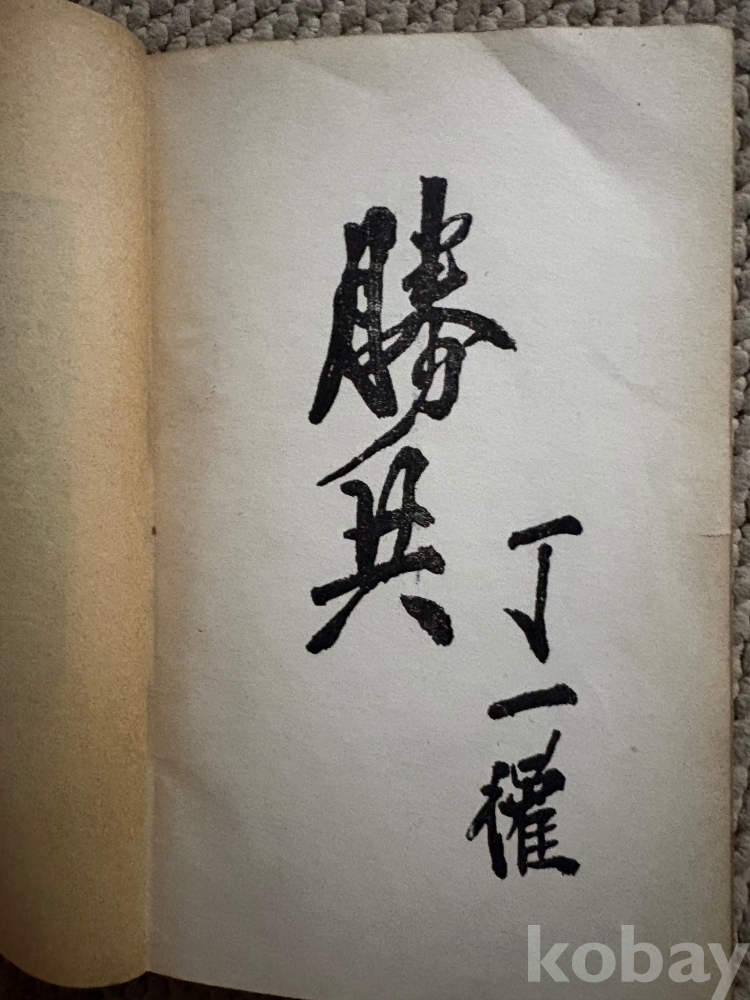 勝共
丁一權
kobay